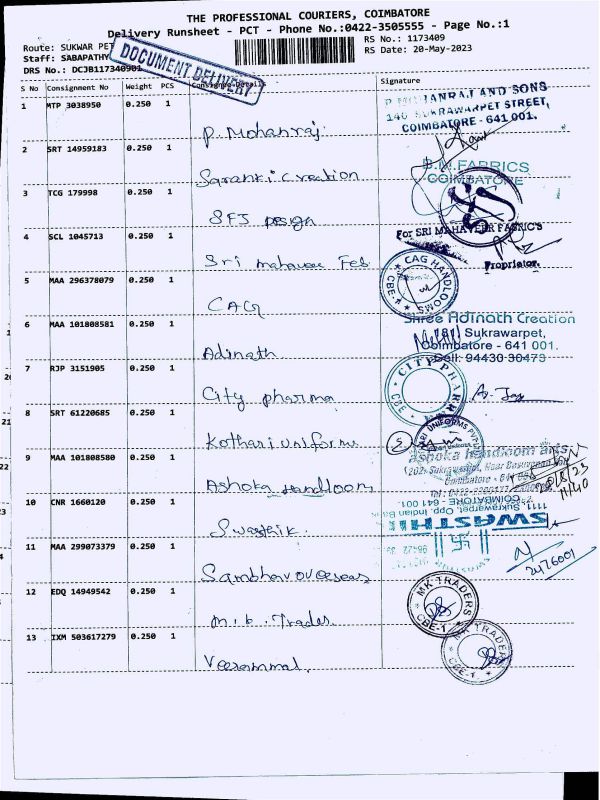 THE PROFESSIONAL COURIERS, COIMBATORE
Delivery Runsheet - PCT - Phone No.:0422-3505555 - Page No.:1
Route: SUKWAR PET
RS No.: 1173409
Staff: SABAPATHY
RS Date: 20-May-2023
DRS No.: DCJB117340901
DOCUMENT DELIVERY
S No Consignment No Weight PCS Consignee Details Signature
1 MTP 3038950 0.250 1
P. Mohanraj
P MOHANRAJ AND SONS
140 SUKRAWARPET STREET,
COIMBATORE - 641 001.
2 SRT 14959183 0.250 1
Saranki Creation
B.M.FABRICS
COIMBATORE
3 TCG 179998 0.250 1
SFJ Design
SFJ
4 SCL 1045713 0.250 1
Sri mahaveer Feb
For SRI MAHAVEER FABRICS
Proprietor.
5 MAA 296378079 0.250 1
CAG
CAG HANDLOOMS
CBE-1
6 MAA 101808581 0.250 1
Adinath
Shree Adinath Creation
181, Sukrawarpet,
Coimbatore - 641 001.
Cell: 94430 30473
7 RJP 3151905 0.250 1
City pharma
CITY PHARMA
CBE
8 SRT 61220685 0.250 1
Kothari uniforms
KOTHARI UNIFORMS PVT
9 MAA 101808580 0.250 1
Ashoka Handloom
ashoka handloom arts
Coimbatore - 641 001
20/5/23
11/40
10 CNR 1660120 0.250 1
Swasthik
SWASTHIK
1111, Sukrawarpet, Opp. Indian Bank
COIMBATORE - 641 001.
11 MAA 299073379 0.250 1
Sambhav overseas
2476001
12 EDQ 14949542 0.250 1
M.K. Trades
MK TRADERS
CBE-1
13 IXM 503617279 0.250 1
Veerammal
MK TRADERS
CBE-1